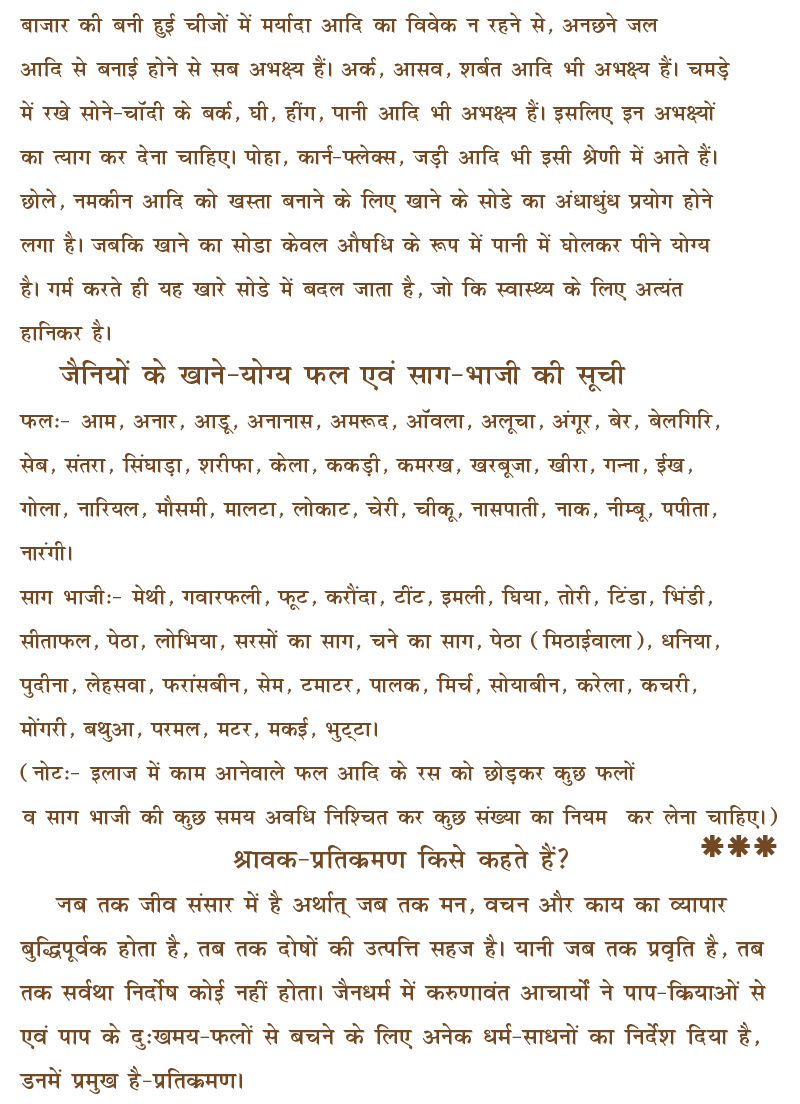 बाजार की बनी हुई चीजों में मर्यादा आदि का विवेक न रहने से, अनछने जल
आदि से बनाई होने से सब अभक्ष्य हैं। अर्क, आसव, शर्बत आदि भी अभक्ष्य हैं। चमड़े
में रखे सोने-चॉदी के बर्क, घी, हींग, पानी आदि भी अभक्ष्य हैं। इसलिए इन अभक्ष्यों
का त्याग कर देना चाहिए। पोहा, कार्न-फ्लेक्स, जड़ी आदि भी इसी श्रेणी में आते हैं।
छोले, नमकीन आदि को खस्ता बनाने के लिए खाने के सोडे का अंधाधुंध प्रयोग होने
लगा है। जबकि खाने का सोडा केवल औषधि के रूप में पानी में घोलकर पीने योग्य
है। गर्म करते ही यह खारे सोडे में बदल जाता है, जो कि स्वास्थ्य के लिए अत्यंत
हानिकर है।
जैनियों के खाने-योग्य फल एवं साग-भाजी की सूची
फलः- आम, अनार, आडू, अनानास, अमरूद, ऑवला, अलूचा, अंगूर, बेर, बेलगिरि,
सेब, संतरा, सिंघाड़ा, शरीफा, केला, ककड़ी, कमरख, खरबूजा, खीरा, गन्ना, ईख,
गोला, नारियल, मौसमी, मालटा, लोकाट, चेरी, चीकू, नासपाती, नाक, नीम्बू, पपीता,
नारंगी।
साग भाजीः- मेथी, गवारफली, फूट, करौंदा, टींट, इमली, घिया, तोरी, टिंडा, भिंडी,
सीताफल, पेठा, लोभिया, सरसों का साग, चने का साग, पेठा (मिठाईवाला), धनिया,
पुदीना, लेहसवा, फरांसबीन, सेम, टमाटर, पालक, मिर्च, सोयाबीन, करेला, कचरी,
मोंगरी, बथुआ, परमल, मटर, मकई, भुट्टा।
(नोटः- इलाज में काम आनेवाले फल आदि के रस को छोड़कर कुछ फलों
व साग भाजी की कुछ समय अवधि निश्चित कर कुछ संख्या का नियम कर लेना चाहिए।)
श्रावक-प्रतिक्रमण किसे कहते हैं? ❋❋❋
जब तक जीव संसार में है अर्थात् जब तक मन, वचन और काय का व्यापार
बुद्धिपूर्वक होता है, तब तक दोषों की उत्पत्ति सहज है। यानी जब तक प्रवृति है, तब
तक सर्वथा निर्दोष कोई नहीं होता। जैनधर्म में करुणावंत आचार्यों ने पाप-क्रियाओं से
एवं पाप के दुःखमय-फलों से बचने के लिए अनेक धर्म-साधनों का निर्देश दिया है,
डनमें प्रमुख है-प्रतिक्रमण।